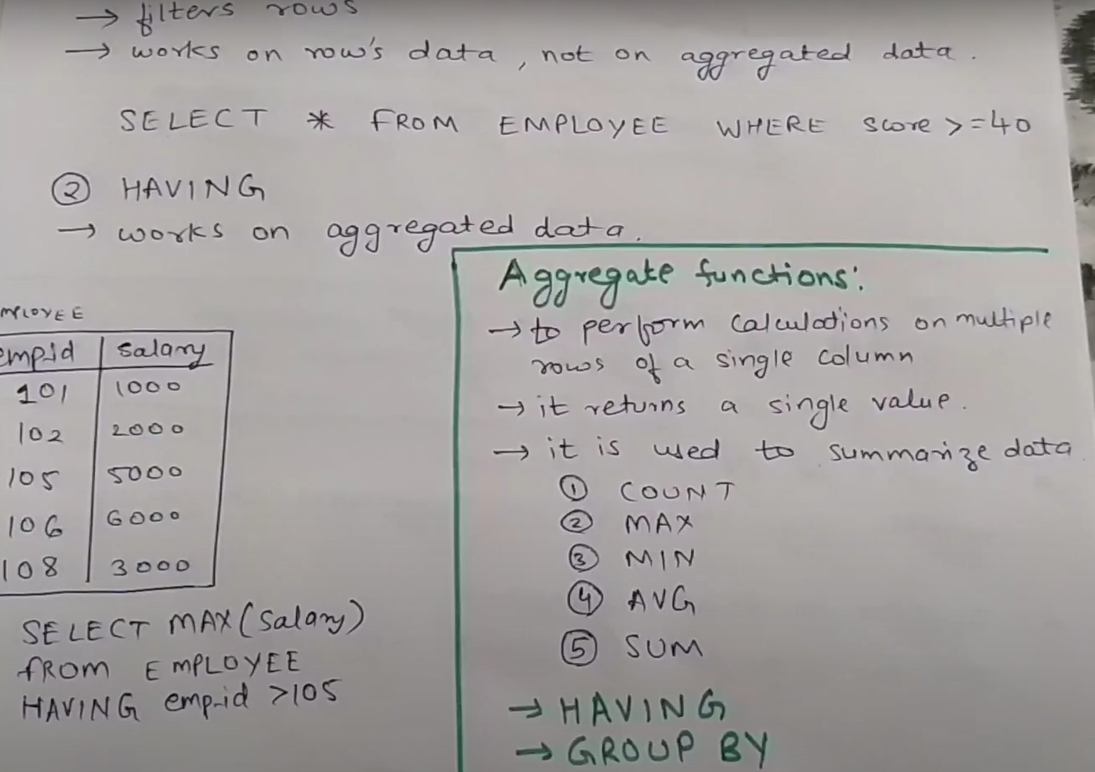 → filters rows
→ works on row's data, not on aggregated data.
SELECT * FROM EMPLOYEE WHERE score >=40
② HAVING
→ works on aggregated data.
MPLOYEE
empid salary
101 1000
102 2000
105 5000
106 6000
108 3000
SELECT MAX(salary)
FROM EMPLOYEE
HAVING emp-id >105
Aggregate functions:
→ to perform calculations on multiple
rows of a single column
→ it returns a single value.
→ it is used to summarize data
① COUNT
② MAX
③ MIN
④ AVG
⑤ SUM
→ HAVING
→ GROUP BY